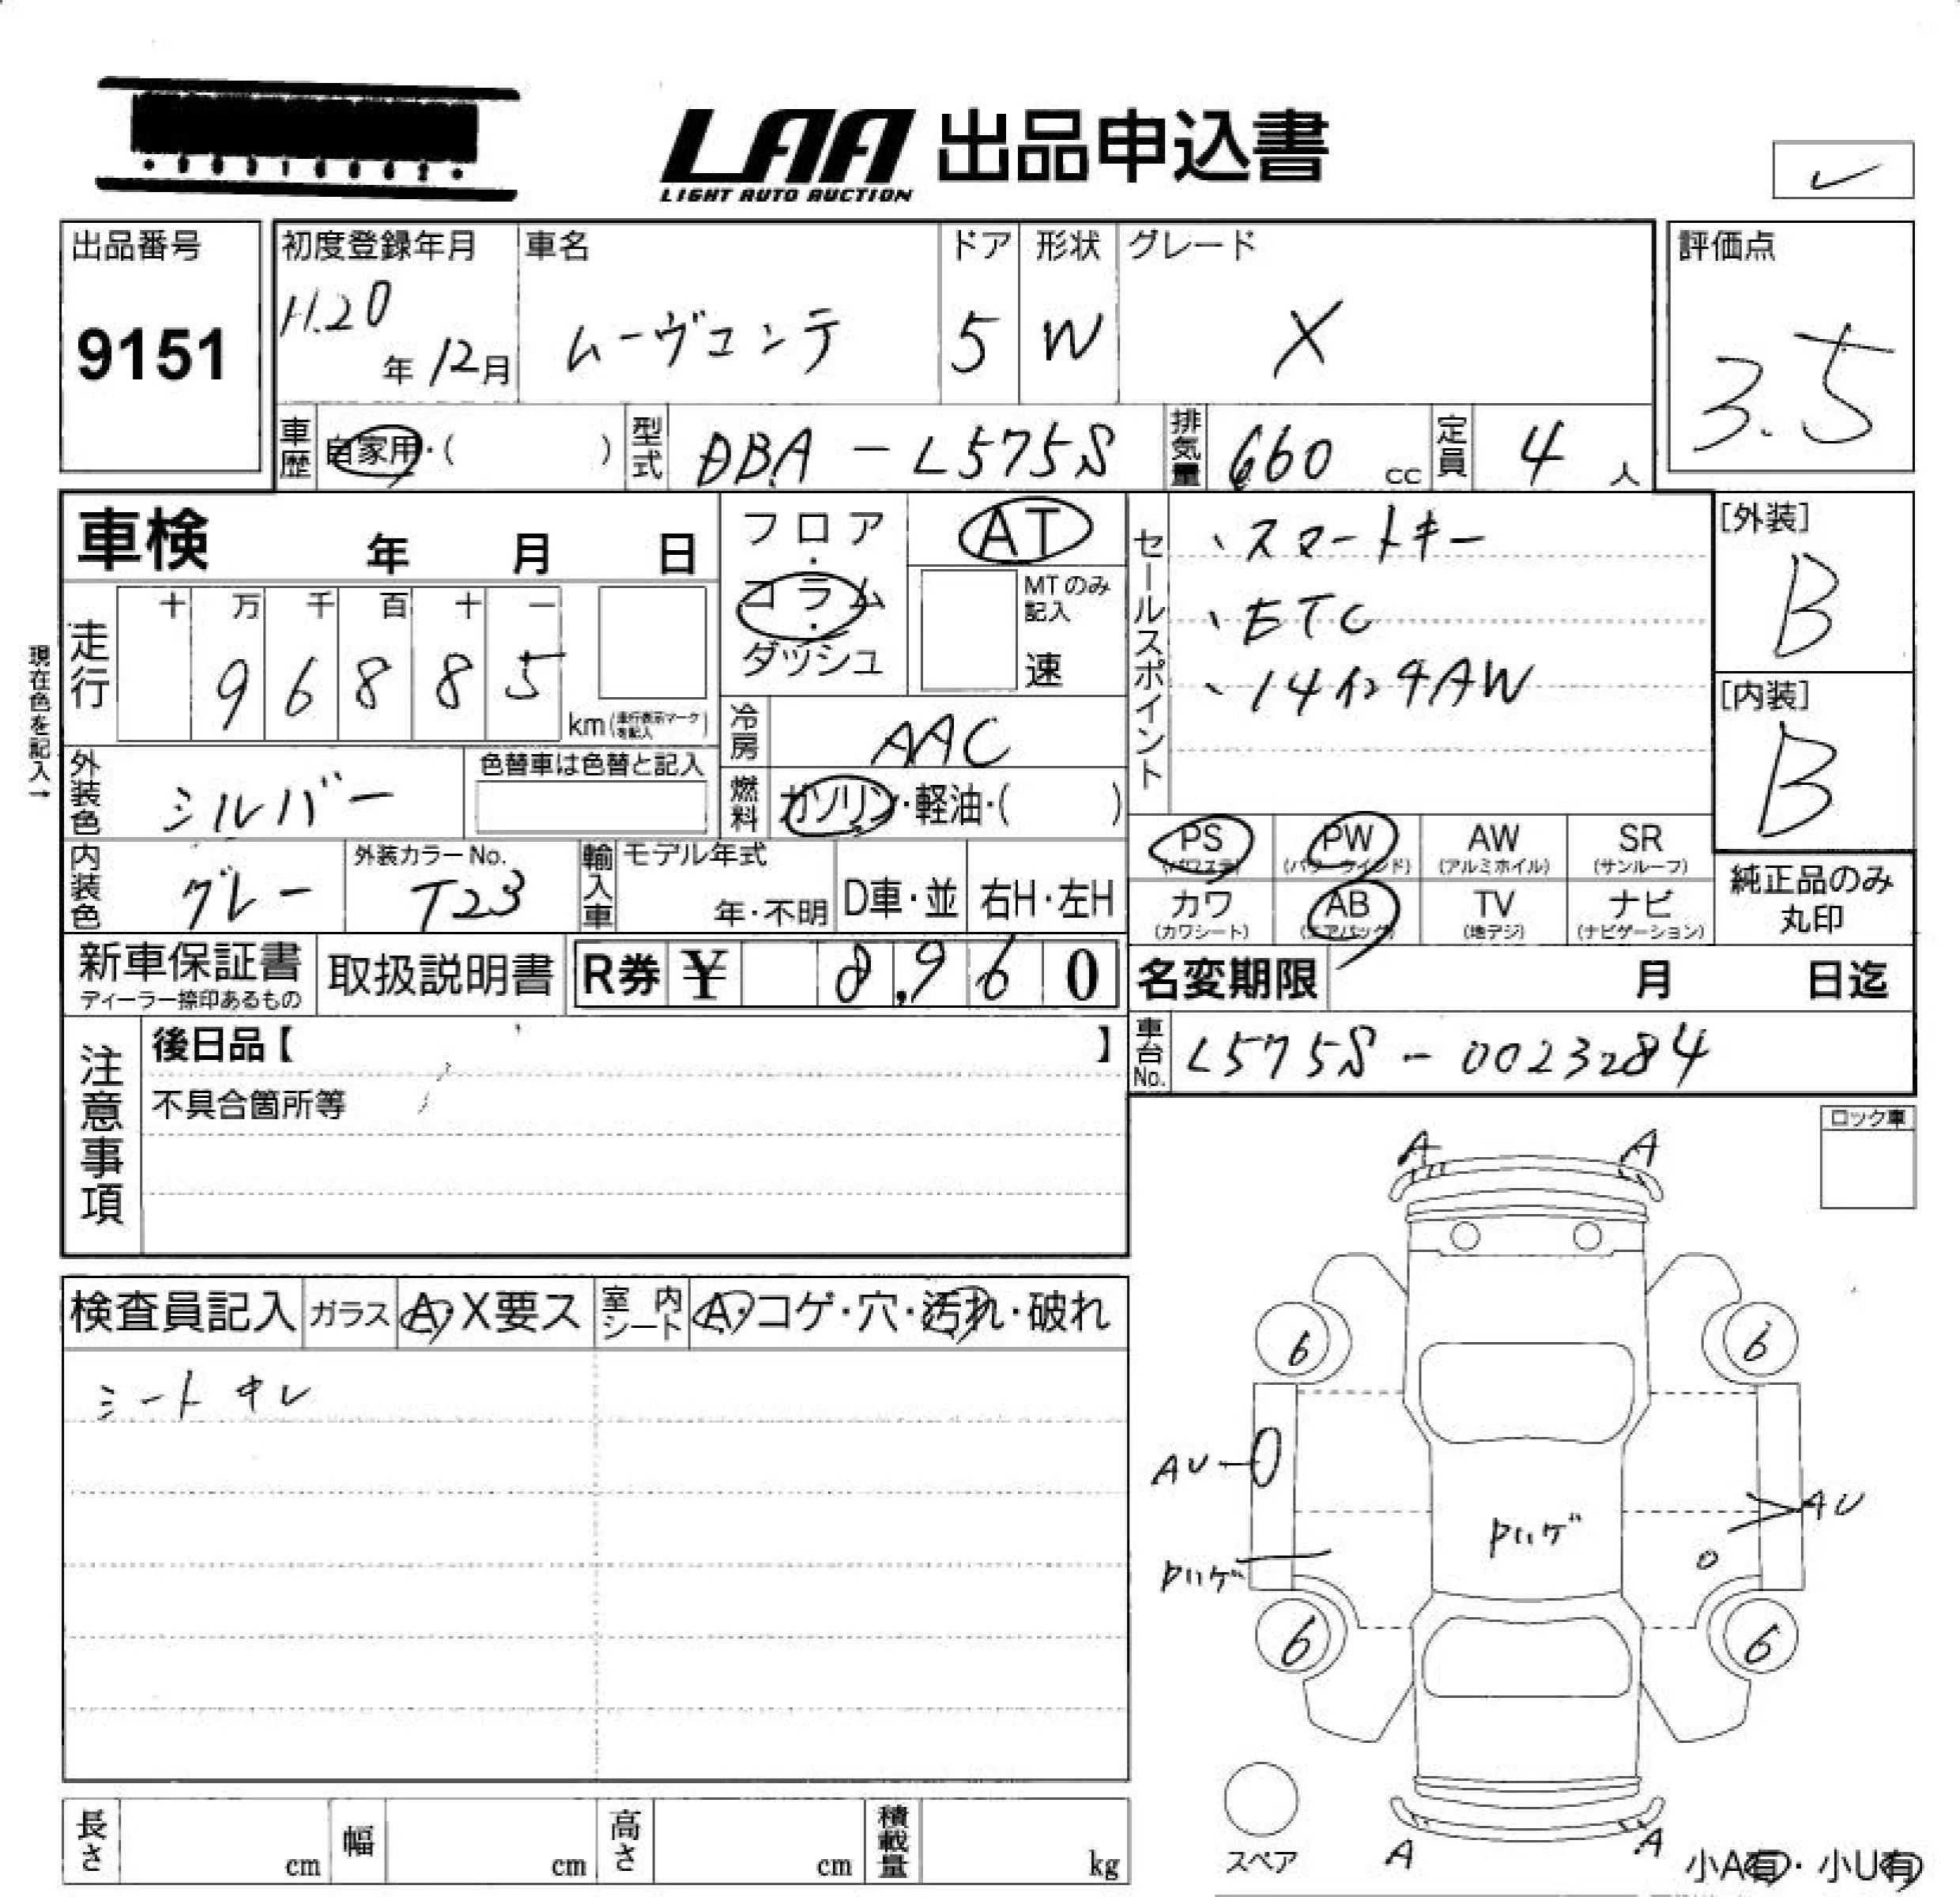 LAA 出品申込書
LIGHT AUTO AUCTION
出品番号
9151
初度登録年月
H.20年12月
車名
ムーヴコンテ
ドア
5
形状
W
グレード
X
評価点
3.5
車歴 自家用・( )
型式 DBA-L575S
排気量 660 cc
定員 4 人
車検 年 月 日
フロア・コラム・ダッシュ
AT
MTのみ記入
速
セールスポイント
、スマートキー
、ETC
、14インチAW
[外装]
B
[内装]
B
現在色を記入→
走行
十 万 千 百 十 一
9 6 8 8 5
km(走行表示マークを記入)
冷房 AAC
外装色 シルバー
色替車は色替と記入
燃料 ガソリン・軽油・( )
PS (パワステ)
PW (パワーウインド)
AW (アルミホイル)
SR (サンルーフ)
カワ (カワシート)
AB (エアバッグ)
TV (地デジ)
ナビ (ナビゲーション)
純正品のみ丸印
内装色 グレー
外装カラーNo. T23
輸入車
モデル年式
年・不明
D車・並
右H・左H
新車保証書
ディーラー捺印あるもの
取扱説明書
R券 ¥ 8,960
名変期限 月 日迄
注意事項
後日品【 】
不具合箇所等
車台No. L575S-0023284
ロック車
A A
6 6
AU
AU
Pハゲ
Pハゲ
6 6
A A
スペア
小A有・小U有
検査員記入
ガラス A・X要ス
室内シート A・コゲ・穴・汚れ・破れ
シートキレ
長さ cm
幅 cm
高さ cm
積載量 kg